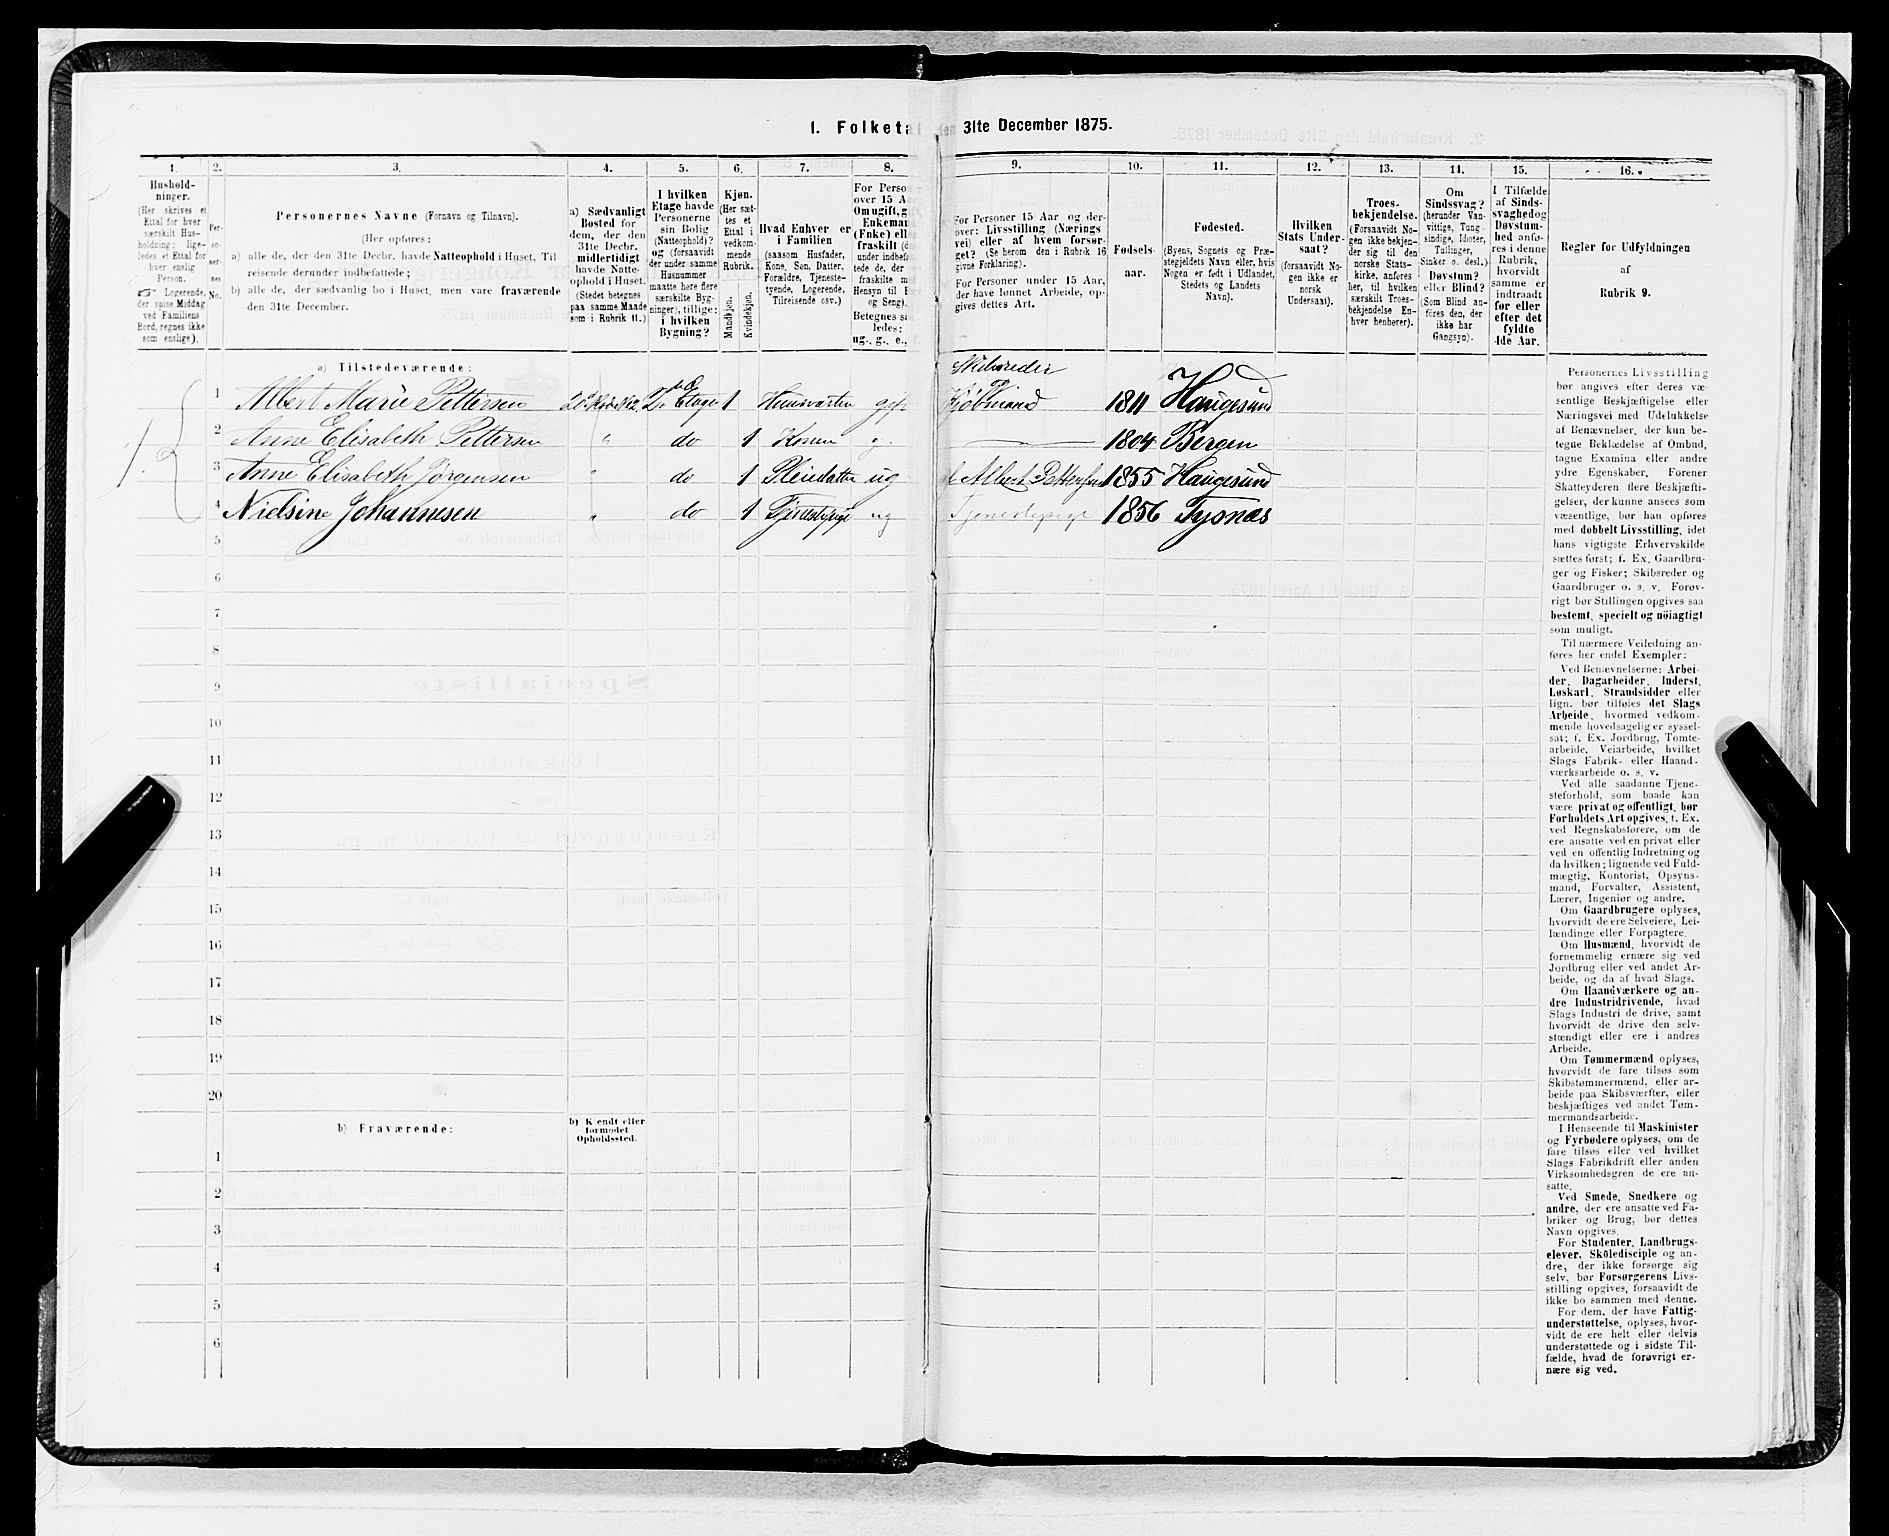 1. Folketa
den
31te December 1875.
1. 2. 3. 4. 5. 6. 7. 8. 9. 10. 11. 12. 13. 14. 15. 16.
Hushold-
ninger.
(Her skrives et
Ettal for hver
særskilt Hus-
holdning; lige-
ledes et Ettal for
hver enslig
Person.
☞ Logerende,
der spise Middag
ved Familiens
Bord, regnes ikke
som enslige).
Per-
so-
ner-
nes
No.
Personernes Navne (Fornavn og Tilnavn).
(Her opføres:
a) alle de, der den 31te Decbr. havde Natteophold i Huset, Til
reisende derunder indbefattede;
b) alle de, der sædvanlig bo i Huset, men vare fraværende
den 31te December.
a) Sædvanligt
Bosted for
dem, der den
31te Decbr.
midlertidigt
havde Natte-
ophold i Huset.
(Stedet betegnes
paa samme Maade
som i Rubrik 11.)
I hvilken
Etage havde
Personerne
sin Bolig
(Natteophold)?
og (forsaavidt
der under samme
Husnummer
maatte høre flere
særskilte Byg-
ninger), tillige:
i hvilken
Bygning?
Kjøn.
(Her sæt-
tes et
Ettal i
vedkom-
mende
Rubrik.
Mandkjøn.
Kvindekjøn.
Hvad Enhver er
i Familien
(saasom Husfader,
Kone, Søn, Datter,
Forældre, Tjeneste-
tyende, Logerende,
Tilreisende osv.)
For Perso
over 15 Aa
Om ugift, g
Enkeman
(Fnke) elle
fraskilt (de
under indbefa
tede de, der
fraskilte m
Hensyn til B
og Seng).
Betegnes sa
ledes:
ug., g., e.,
For Personer 15 Aar og der-
over: Livsstilling (Nærings
vei) eller af hvem forsør-
get? (Se herom den i Rubrik 16
givne Forklaring).
For Personer under 15 Aar,
der have lønnet Arbeide, op-
gives dettes Art.
Fødsels-
aar.
Fødested.
(Byens, Sognets og Præ-
stegjeldets Navn eller, hvis
Nogen er født i Udlandet,
Stedets og Landets
Navn).
Hvilken
Stats Under-
saat?
(forsaavidt No-
gen ikke er
norsk
Undersaat).
Troes-
bekjendelse.
(Forsaavidt No-
gen ikke bekjen-
der sig til den
norske Stats-
kirke, anføres
her, til hvilken
særskilt Troes-
bekjendelse En-
hver henhører).
Om
Sindssvag?
(herunder Van-
vittige, Tung
sindige, Idioter,
Tullinger,
Sinker o. desl.)
Døvstum?
eller Blind?
(Som Blind an-
føres den, der
ikke har
Gangsyn).
I Tilfælde
af Sinds-
svaghedog
Døvstum-
hed anfø-
res i denne
Rubrik,
hvorvidt
samme er
indtraadt
før eller
efter det
fyldte
4de Aar.
Regler for Udfyldningen
af
Rubrik 9.
a) Tilstedeværende:
Skibsreder
1 Albert Marie Pettersen 2. Etage 1 Huusvarten gift Kjøbmand 1811 Haugesund
2 Anne Elisabeth Pettersen " do 1 Konen g. 1804 Bergen
3 Anne Elisabeth Jørgensen " do 1 Pleiedatter ug Albert Pettersen 1855 Haugesund
4 Nielsine Johannesen " do 1 Tjenestepige ug Tjenestepige 1856 Tysnæs
1.
5
6
7
8
9
10
11
12
13
14
15
16
17
18
19
20
b) Fraværende:
b) Kjendt eller
formodet
Opholdssted.
1
2
3
4
5
6
Personernes Livsstilling
bør angives efter deres væ-
sentlige Beskjæftigelse eller
Næringsvei med Udelukkelse
af Benævnelser, der kun be-
tegne Beklædelse af Ombud,
tagne Examina eller andre
ydre Egenskaber. Forener
Skatteyderen flere Beskjæfti-
gelser, der kunne ansees som
væsentlige, bør han opføres
med dobbelt Livsstilling, idet
hans vigtigste Erhvervskilde
sættes først; f. Ex. Gaardbru-
ger og Fisker; Skibsreder og
Gaardbruger o. s. v. Forøv-
rigt bør Stillingen opgives saa
bestemt, specielt og nöiagtigt
som muligt.
Til nærmere Veiledning an-
føres her endel Exempler:
Ved Benævnelserne: Arbei-
der, Dagarbeider, Inderst,
Løskarl, Strandsidder eller
lign. bør tilføies det Slags
Arbeide, hvormed vedkom-
mende hovedsagelig er syssel-
sat; f. Ex. Jordbrug, Tomte-
arbeide, Veiarbeide, hvilket
Slags Fabrik- eller Haand-
værksarbeide o. s. v.
Ved alle saadanne Tjene-
steforhold, som baade kan
være privat og offentligt, bør
Forholdets Art opgives, t. Ex.
ved Regnskabsførere, om de
ere ansatte ved en privat eller
ved en offentlig Indretning og
da hvilken; lignende ved Fuld-
mægtig, Kontorist, Opsyns-
mand, Forvalter, Assistent,
Lærer, Ingeniør og andre.
Om Gaardbrugere oplyses,
hvorvidt de ere Selveiere, Lei-
lændinge eller Forpagtere.
Om Husmænd, hvorvidt de
fornemmelig ernære sig ved
Jordbrug eller ved andet Ar-
beide, og da af hvad Slags.
Om Haandværkere og an-
dre Industridrivende, hvad
Slags Industri de drive, samt
hvorvidt de drive den selv-
stændigt eller ere i andres
Arbeide.
Om Tømmermænd oplyses,
hvorvidt de fare tilsøs som
Skibstømmermænd, eller ar-
beide paa Skibsværfter, eller
beskjæftiges ved andet Tøm-
mermandsarbeide.
I Henseende til Maskinister
og Fyrbødere oplyses, om de
fare tilsøs eller ved hvilket
Slags Fabrikdrift eller anden
Virksomhedsgren de ere an-
satte.
Ved Smede, Snedkere og
andre, der ere ansatte ved Fa-
briker og Brug, bør dettes
Navn opgives.
For Studenter, Landbrugs-
elever, Skoledisciple og an-
dre, der ikke forsørge sig
selv, bør Forsørgerens Livs-
stilling opgives, forsaavidt de
ikke bo sammen med denne.
For dem, der have Fattig-
understøttelse, oplyses, hvor-
vidt de ere helt eller delvis
understøttede og i sidste Til-
fælde, hvad de forøvrigt er-
nære sig ved.